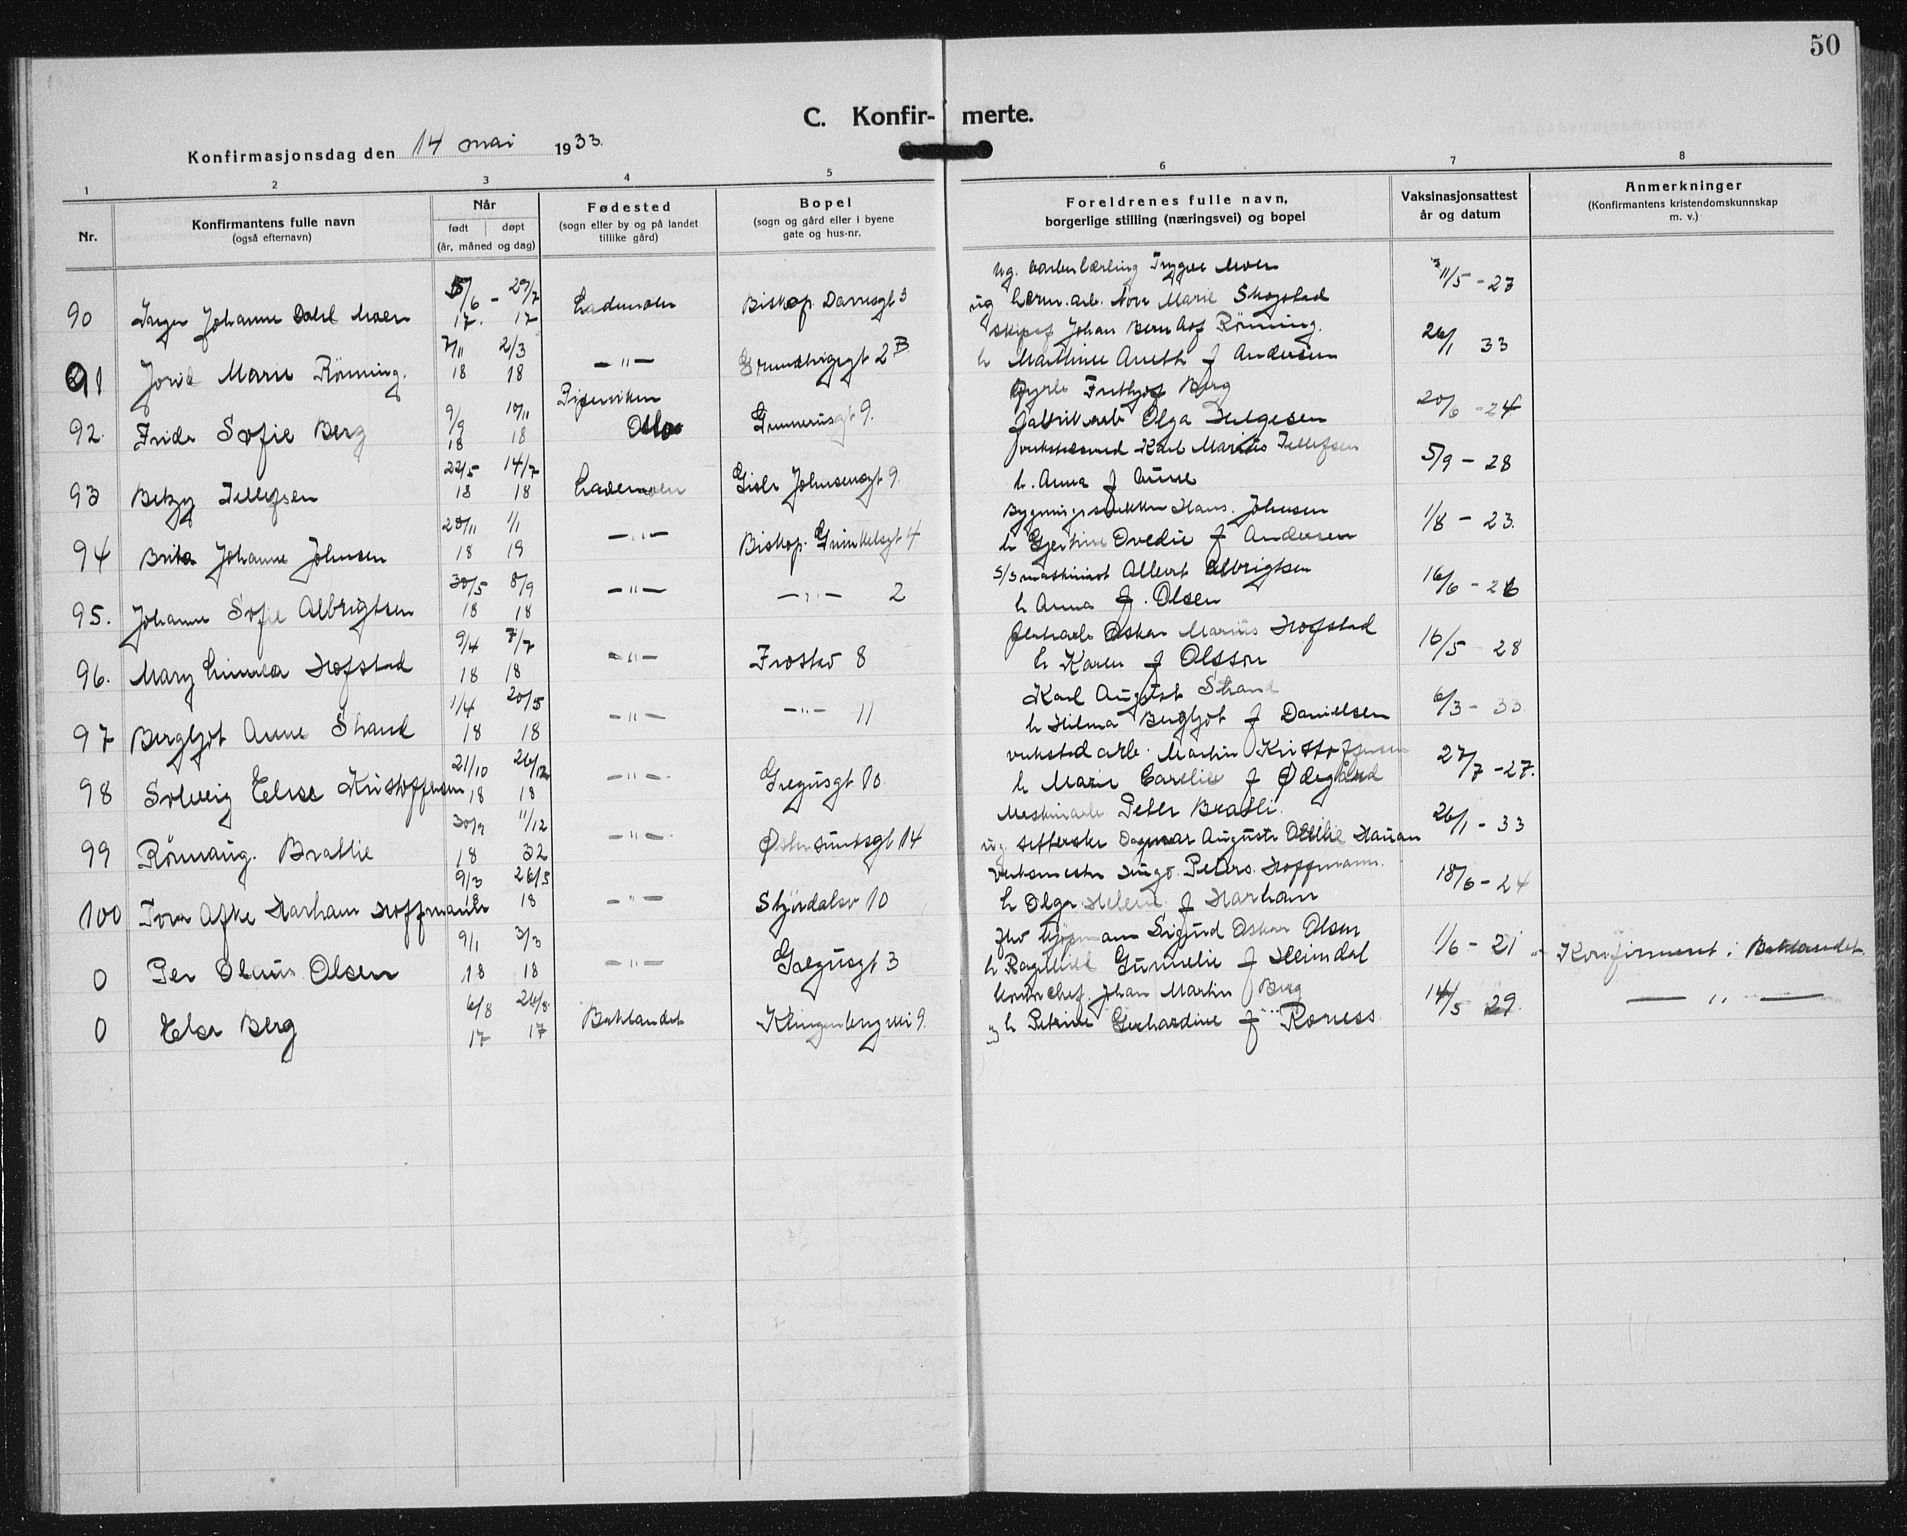 50
C. Konfir- merte.
Konfirmasjonsdag den 14 mai 1933.
1 2 3 4 5 6 7 8
Nr.
Konfirmantens fulle navn
(også efternavn)
Når
født døpt
(år, måned og dag)
Fødested
(sogn eller by og på landet
tillike gård)
Bopel
(sogn og gård eller i byene
gate og hus-nr.
Foreldrenes fulle navn,
borgerlige stilling (næringsvei) og bopel
Vaksinasjonsattest
år og datum
Anmerkninger
(Konfirmantens kristendomskunnskap
m. v.)
ug. Trygve Moen
90 Johanne Dahl Moen 5/6 - 29/7 Lademoen Biskop Darresgt 3 ug Marie Skogstad 11/5 - 23
17. 17
Johan Rønning.
91 Marie Rønning. 7/11 2/3 —"— Grundtvigsgt 2 B h Andersen 26/1 33
18 18
Fritjof Berg
92. Sofie Berg 9/9 10/11 Oslo Gunnerusgt 9. fabrikarb Olga Helgesen 20/6 - 24
18 18
Karl Marius Tellefsen
93 Betzy Tellefsen 22/5 14/7 Lademoen Gisle Johnsensgt 9. h. Anna f Aune 5/9 - 28
18 18
Hans Johnsen
94 Brita Johanne Johnsen 28/11 1/1 —"— Biskop Grimkelsgt 4 h f Andersen 1/8 - 23.
18 19
S/S maskinist Albert Albrigtsen
95. Johanne Sofie Albrigtsen 30/5 8/9 —"— —"— 2 h Anna f. Olsen 16/6 - 26
18 18
Oskar Marius Hofstad
96. Mary Hofstad 9/4 7/7 —"— Frostav 8 h Karen f Olsson 16/5 28
18 18
Karl August Strand
97 Bergljot Anne Strand 1/4 20/5 —"— —"— 11 h Hilma Bergljot f Danielsen 6/3 - 33
18 18
verksted arb. Martin Kristoffersen
98 Solveig Elise Kristoffersen 21/10 26/12 —"— Gregusgt 10. h Marie f Ødegård 27/7 - 27.
18 18
Peter Bratli.
99 Rønnaug. Bratlie 30/9 11/12 —"— Østersundsgt 14 ug. Dagmar Auguste Hauan 26/1 - 33
18 32
Verksmester Hugo Peters. Hoffmann.
100 Harham Hoffmann 9/3 26/5 —"— Stjørdalsv 10 h Olga Helene f Harham 18/6 - 24
18 18
Sigurd Oskar Olsen
0 Per Olaus Olsen 9/1 3/3 —"— Gregusgt 3 h Ragnhild Gunnelie f Heimdal 1/6 - 21 Konfirmert i Baklandet.
18 18
Johan Martin Berg
0 Else Berg 6/8 26/8 Baklandet Klingenbergvei 9. h Petrine Gerhardine f Roness 14/5 29. —"—
17 17